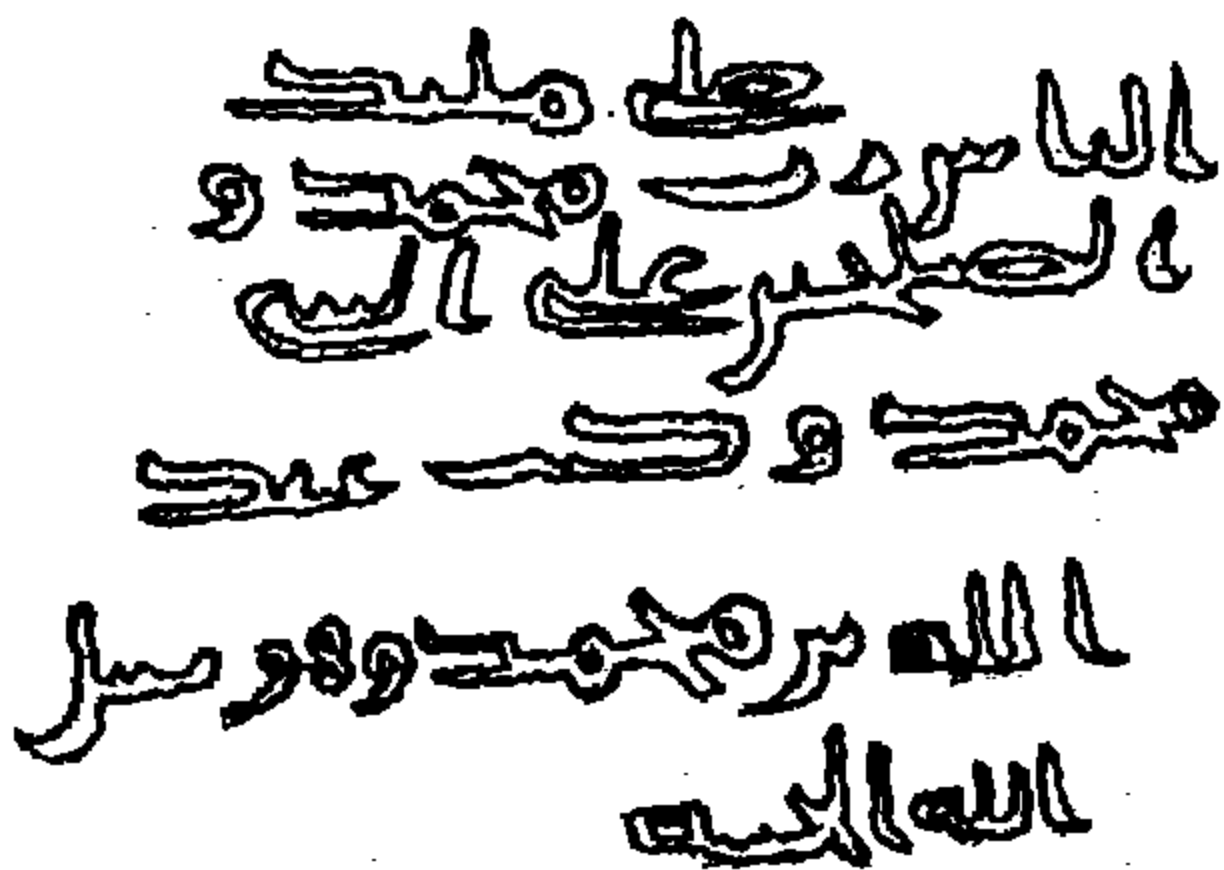 صلى مليك
الناس رب محمد و
الصلحين على النبي
محمد وكتب عبد
الله بن محمد وهو يسل
الله الجنة